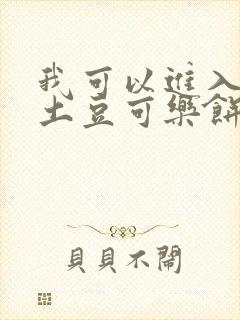 我可以進入
土豆可樂餅
貝貝不鬧